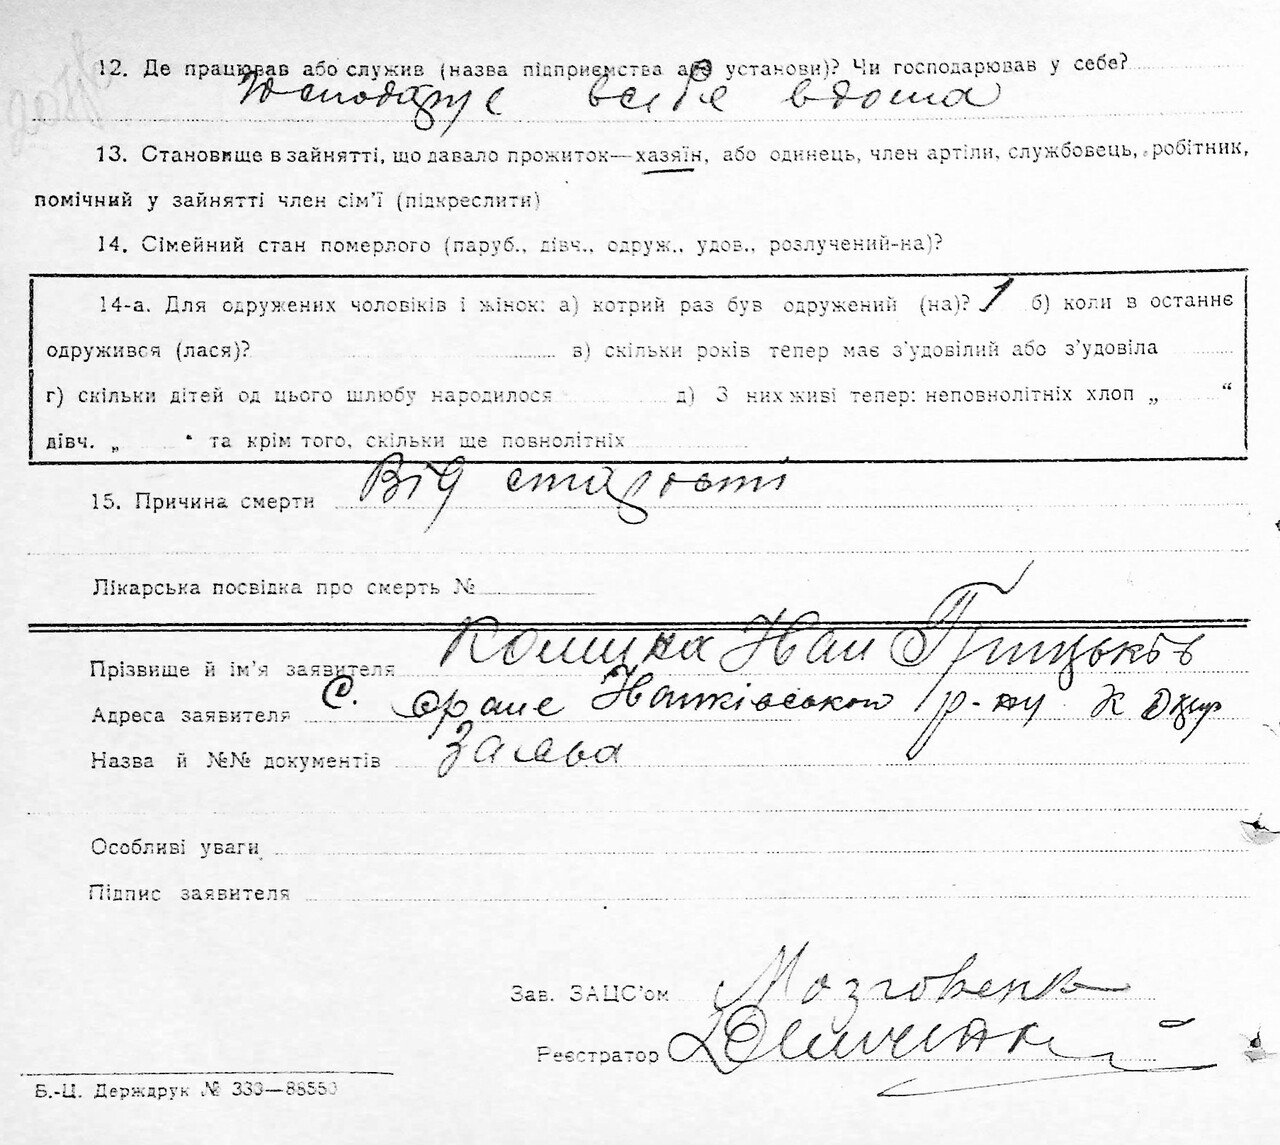 12. Де працював або служив (назва підприємства або установи)? Чи господарював у себе?
Господарує в себе вдома
13. Становище в зайнятті, що давало прожиток—хазяїн, або одинець, член артілі, службовець, робітник,
помічний у зайнятті член сім'ї (підкреслити)
14. Сімейний стан померлого (паруб., дівч., одруж., удов., розлучений-на)?
14-а. Для одружених чоловіків і жінок: а) котрий раз був одружений (на)? 1 б) коли в останнє
одружився (лася)? в) скільки років тепер має з'удовілий або з'удовіла
г) скільки дітей од цього шлюбу народилося д) З них живі тепер: неповнолітніх хлоп „ “
дівч. „ “ та крім того, скільки ще повнолітніх
15. Причина смерти Від старости
Лікарська посвідка про смерть №
Прізвище й ім'я заявителя Іван Грицьків
Адреса заявителя с. р-ну
Назва й №№ документів Заява
Особливі уваги
Підпис заявителя
Зав. ЗАЦС'ом Мозговенко
Реєстратор
Б.-Ц. Держдрук № 333—88550